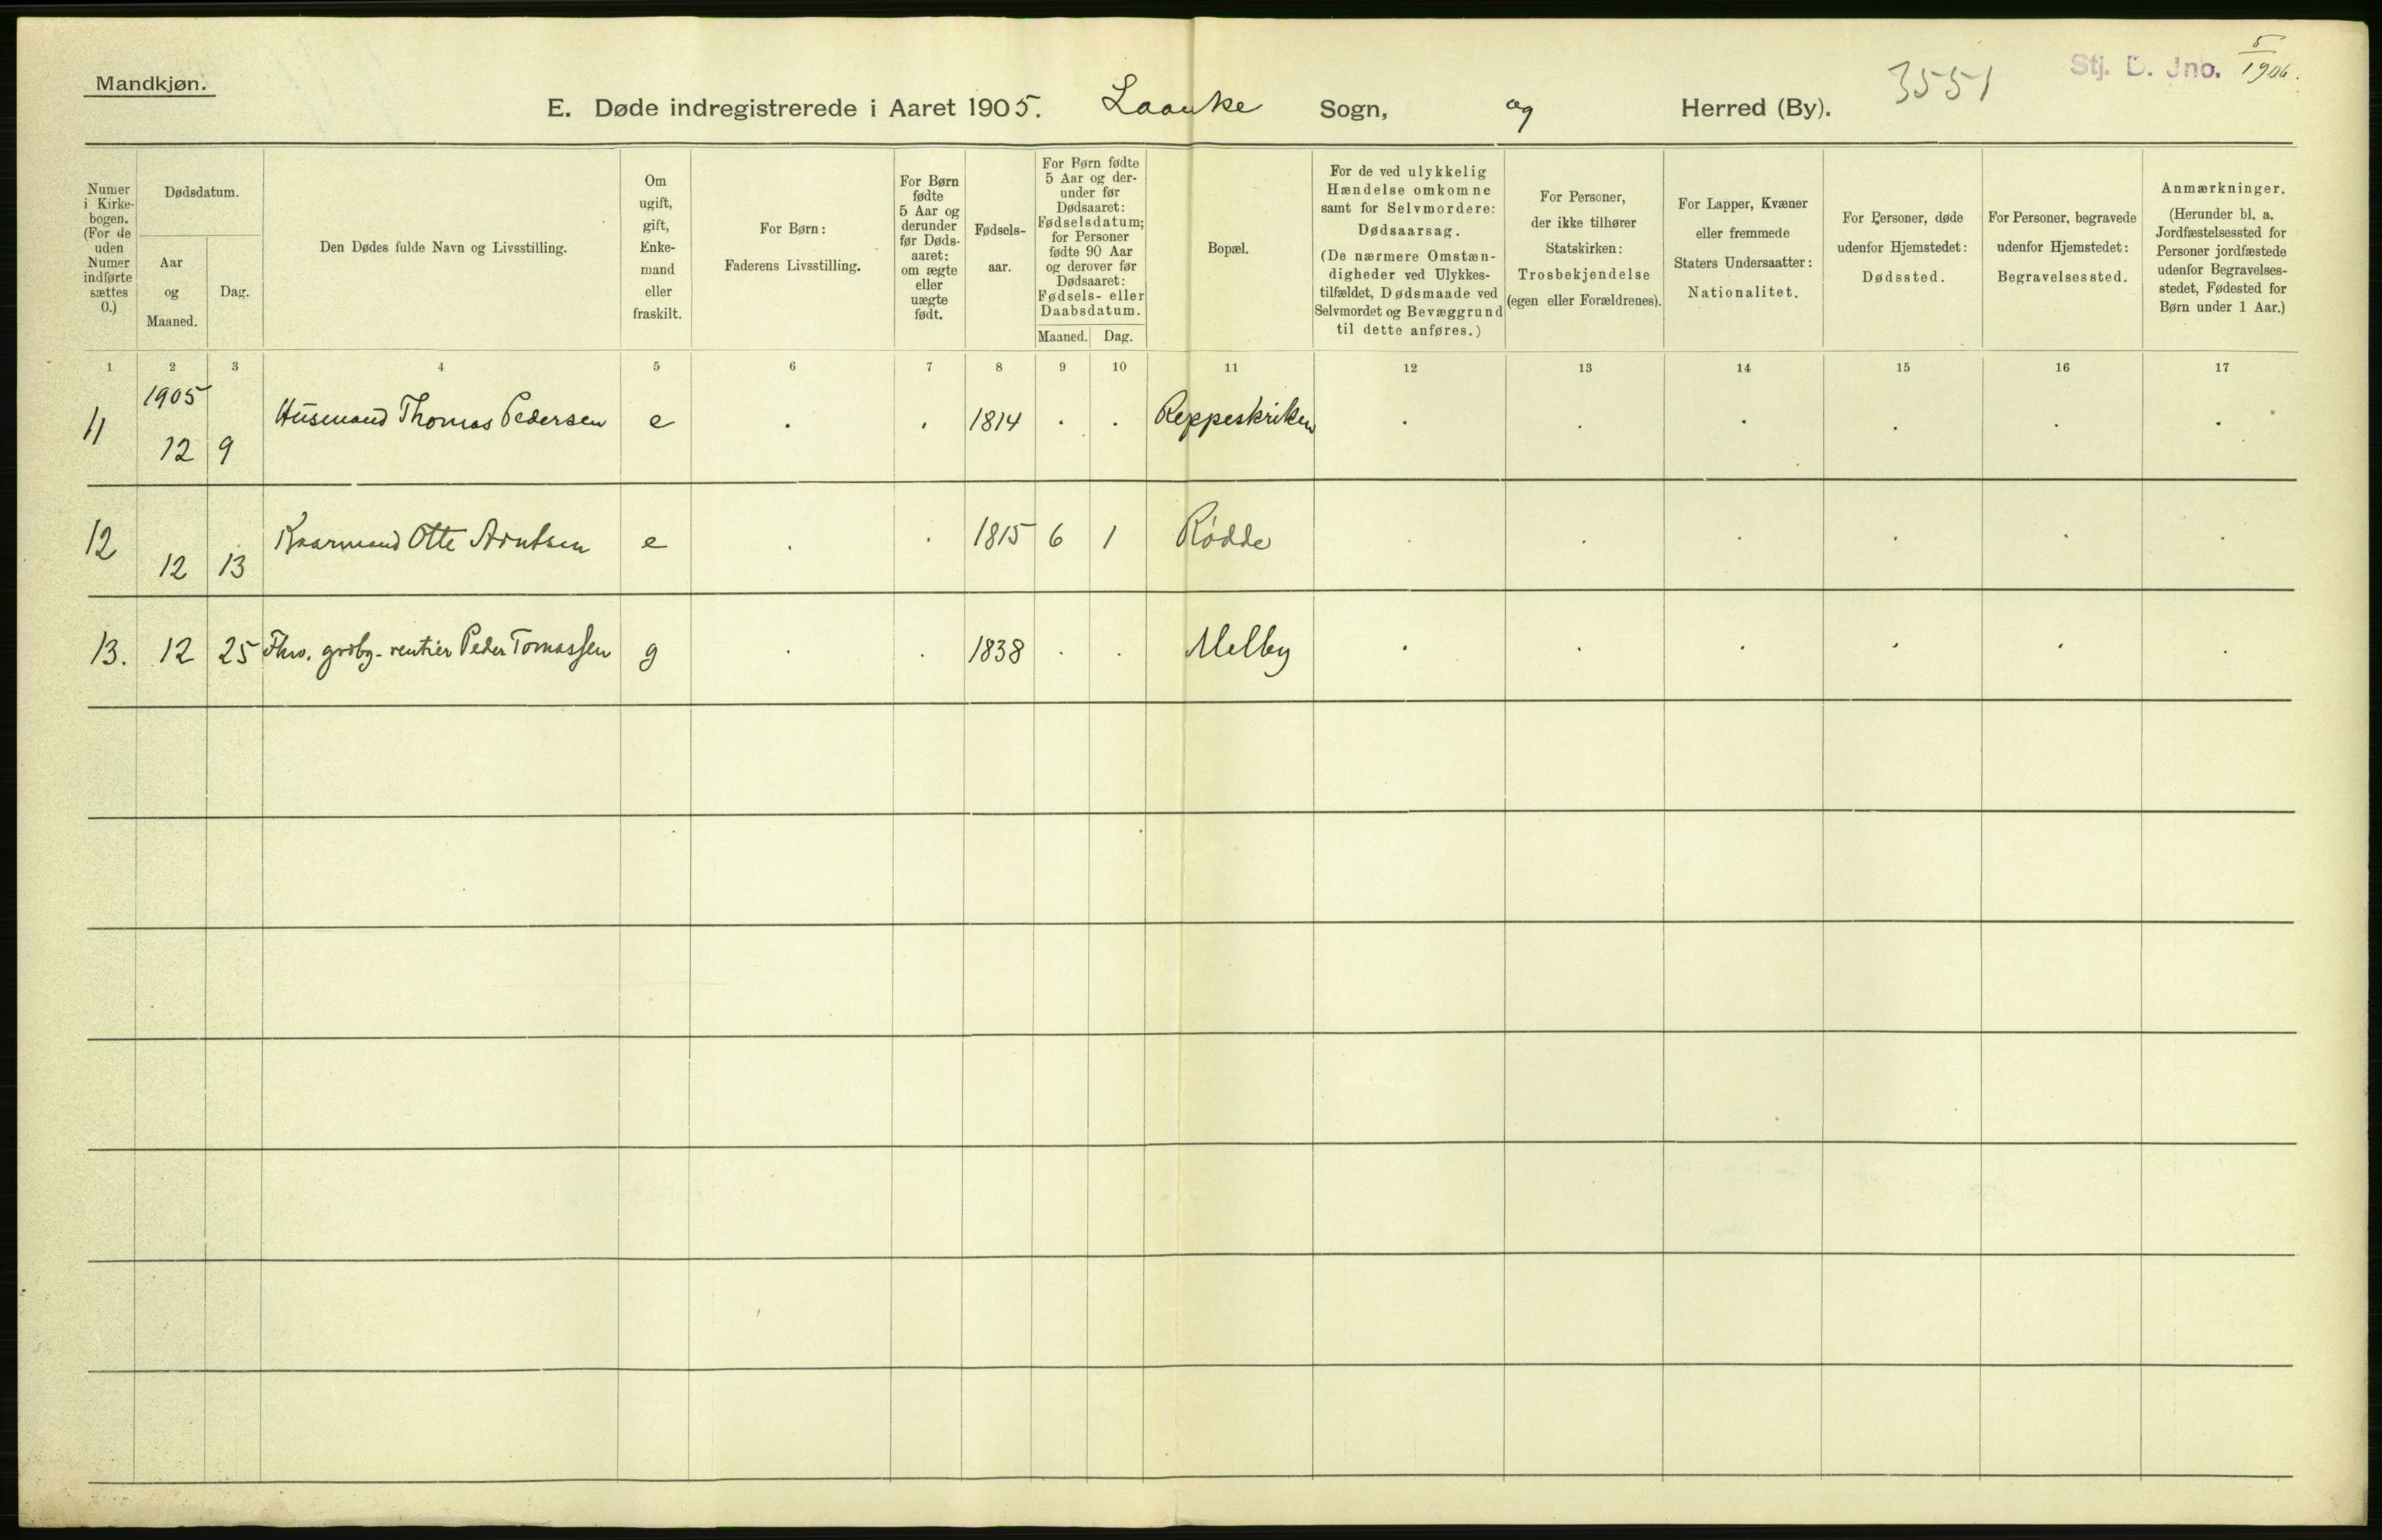 Mandkjøn.
E. Døde indregistrerede i Aaret 1905. Laanke Sogn, og Herred (By).
3551
Stj. D. Jno. 5/1906.
Numer i Kirke-bogen. (For de uden Numer indførte sættes 0.)
Dødsdatum.
Aar og Maaned.
Dag.
Den Dødes fulde Navn og Livsstilling.
Om ugift, gift, Enke-mand eller fraskilt.
For Børn: Faderens Livsstilling.
For Børn fødte 5 Aar og derunder før Døds-aaret: om ægte eller uægte født.
Fødsels-aar.
For Børn fødte 5 Aar og der-under før Dødsaaret: Fødselsdatum; for Personer fødte 90 Aar og derover før Dødsaaret: Fødsels- eller Daabsdatum.
Maaned. Dag.
Bopæl.
For de ved ulykkelig Hændelse omkomne samt for Selvmordere: Dødsaarsag. (De nærmere Omstæn-digheder ved Ulykkes-tilfældet, Dødsmaade ved Selvmordet og Bevæggrund til dette anføres.)
For Personer, der ikke tilhører Statskirken: Trosbekjendelse (egen eller Forældrenes).
For Lapper, Kvæner eller fremmede Staters Undersaatter: Nationalitet.
For Personer, døde udenfor Hjemstedet: Dødssted.
For Personer, begravede udenfor Hjemstedet: Begravelsessted.
Anmærkninger. (Herunder bl. a. Jordfæstelsessted for Personer jordfæstede udenfor Begravelses-stedet, Fødested for Børn under 1 Aar.)
1 2 3 4 5 6 7 8 9 10 11 12 13 14 15 16 17
1905
11 12 9 Husmand Thomas Pedersen e . . 1814 . . Reppeskriken . . . . . .
12 12 13 Kaarmand Otte Arntsen e . . 1815 6 1 Rødde . . . . . .
13. 12 25 Peder Tomassen g . . 1838 . . Melby . . . . . .